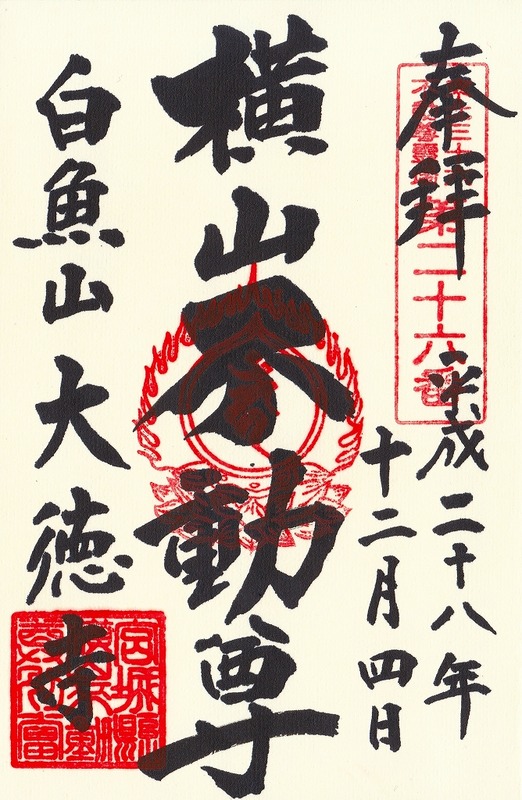 奉拝
第二十六番
平成二十八年
十二月四日
横山不動尊
白魚山大徳寺